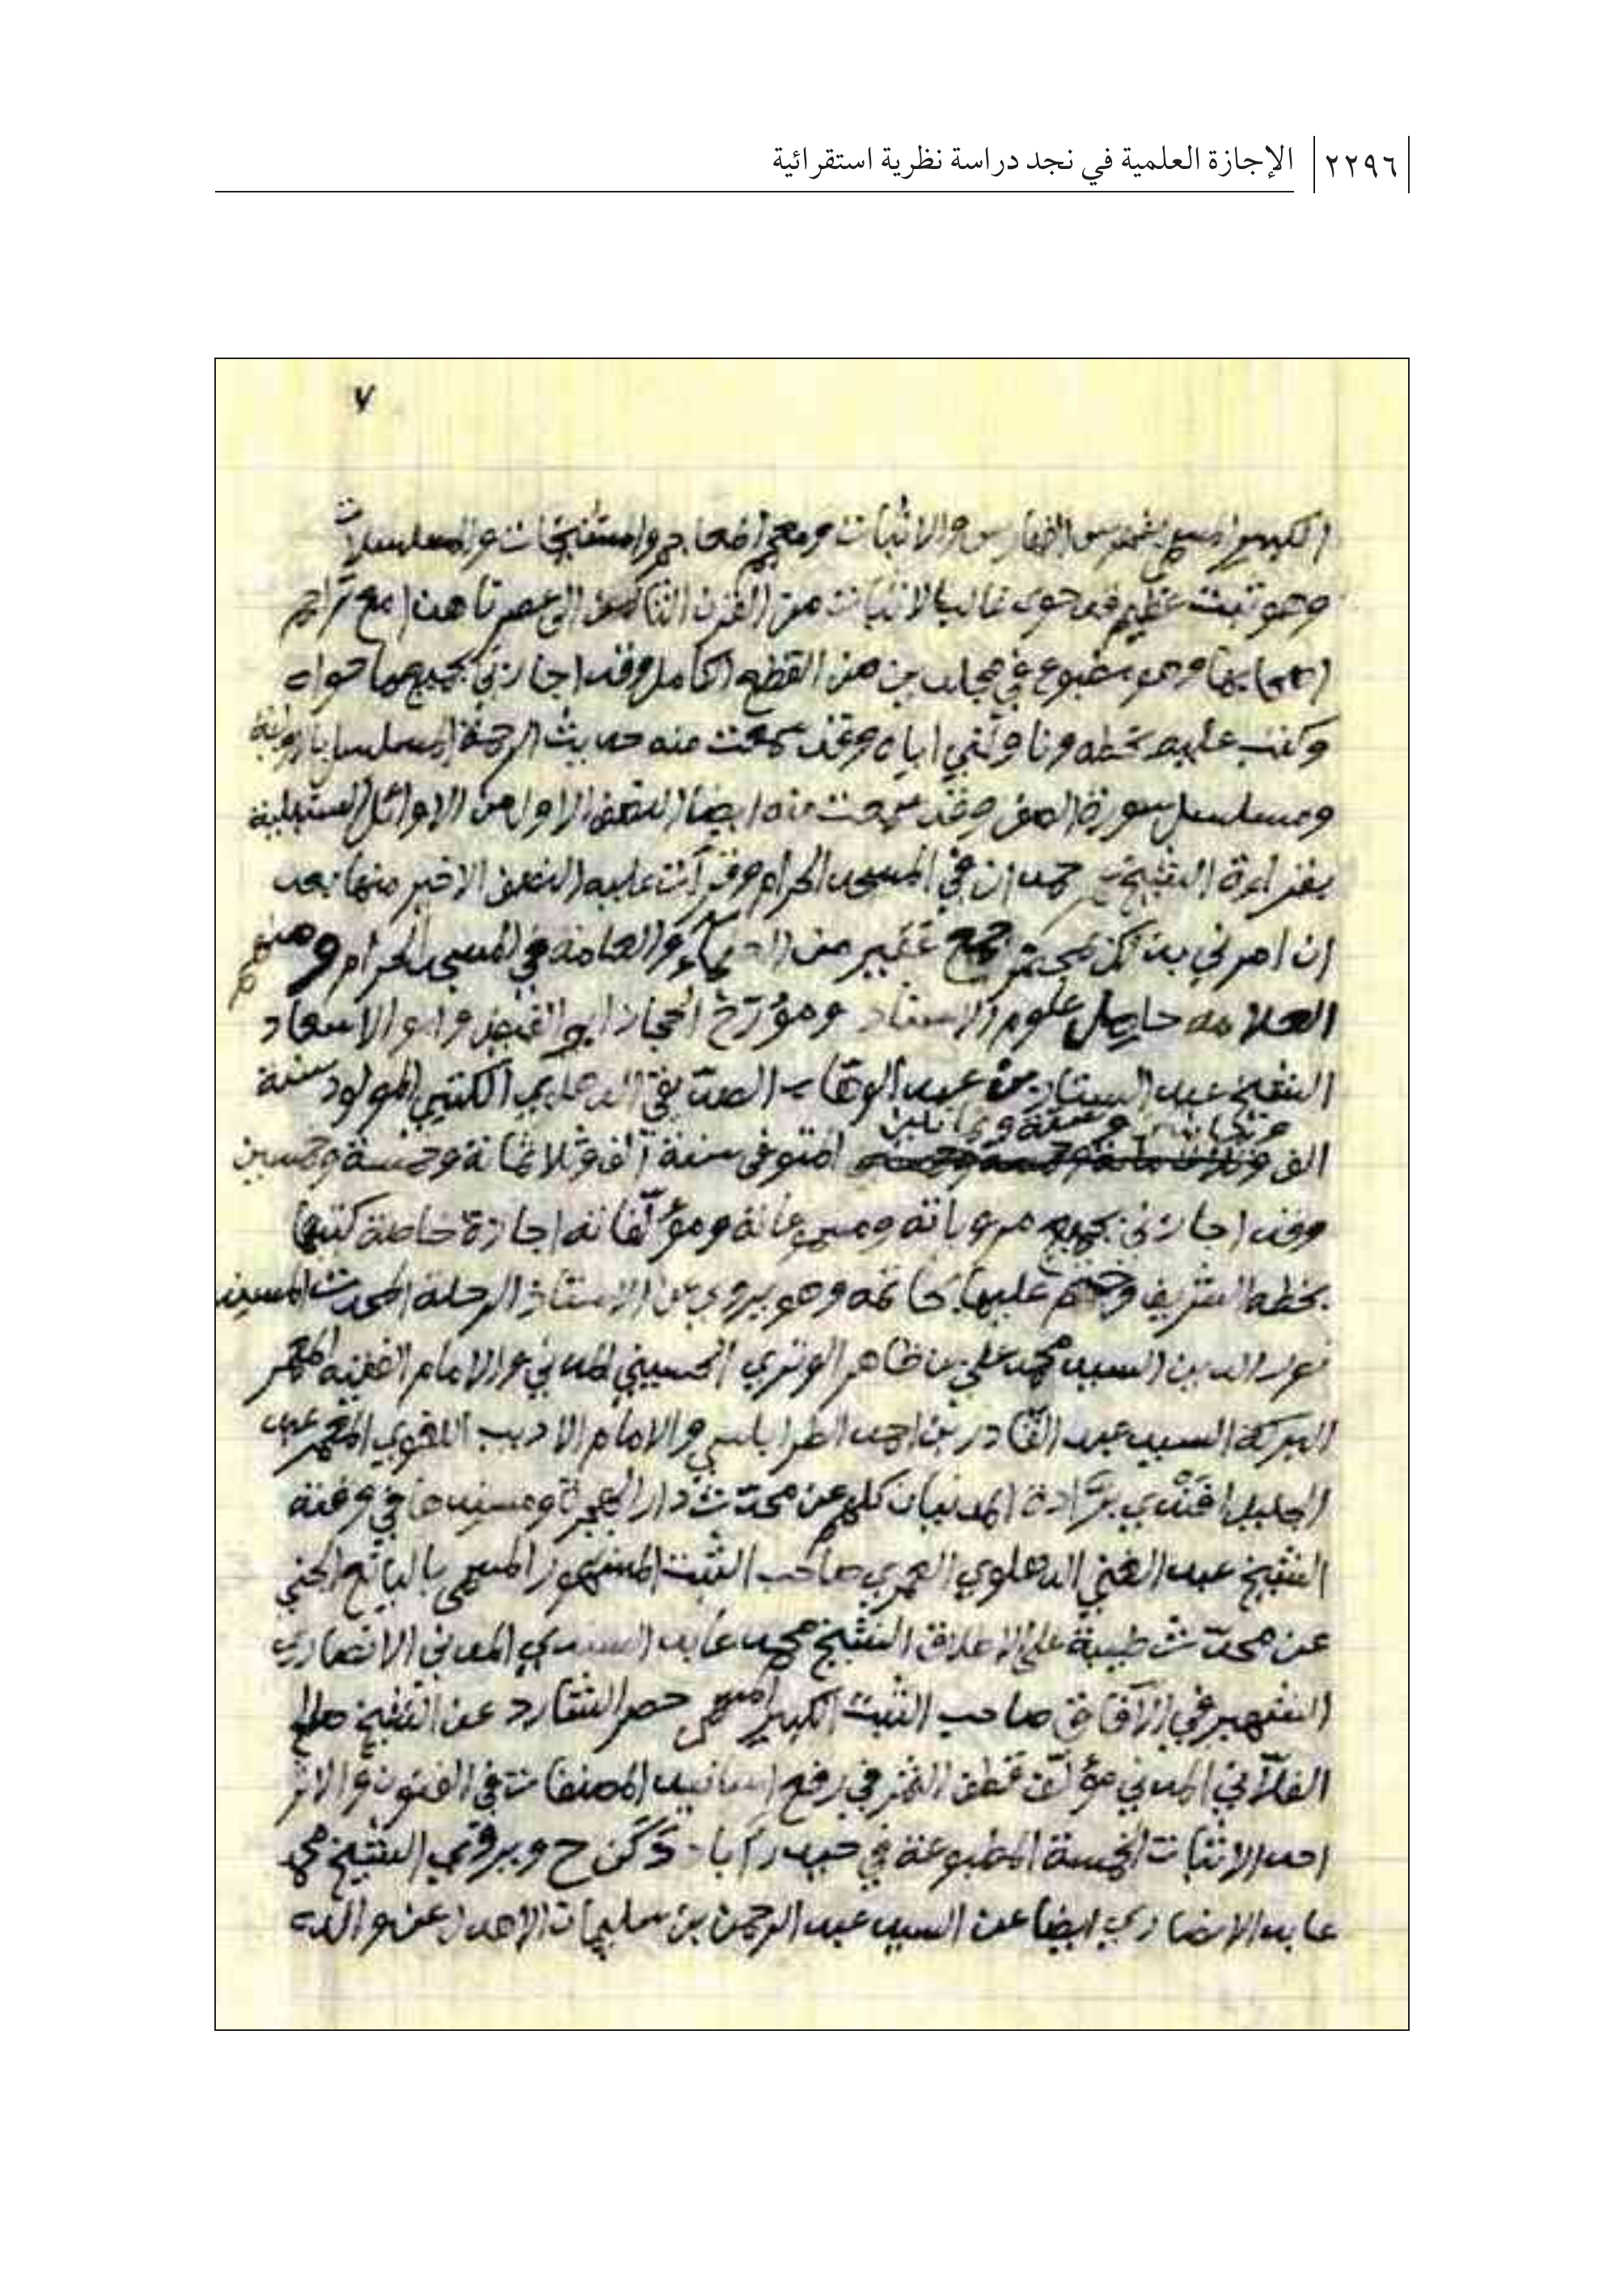 ٢٢٩٦ الإجازة العلمية في نجد دراسة نظرية استقرائية
٧
الكبير المسمى بفهرس الفهارس والاثبات ومعجم المعاجم والمشيخات والمسلسلات
وهو ثبت عظيم قد حوى غالب الاثبات من القرن إلى عصرنا هذا مع تراجم
اصحابها وهو مطبوع في مجلدين من القطع الكامل وقد اجازني بجميع ما حواه
وكتب عليه بخطه وناولني اياه وقد سمعت منه حديث الرحمة المسلسل بالاولية
ومسلسل سورة الصف وقد سمعت منه ايضا النصف الاول من الاوائل السنبلية
بقراءة الشيخ حمدان في المسجد الحرام وقرأت عليه النصف الاخير منها بعد
ان امرني بذلك جمع غفير من والعامة في المسجد الحرام ومنهم
العلامة علوم الاسناد ومؤرخ الحجاز ابو الفيض وابو الاسعاد
الشيخ عبد الستار بن عبد الوهاب الصديقي الدهلوي الكتبي المولود سنة
وستة وثمانين
الف المتوفى سنة الف وثلاثمائة وخمسة وخمسين
وقد اجازني بجميع مروياته ومسموعاته ومؤلفاته اجازة خاصة كتبها
بخطه الشريف وختم عليها بخاتمه وهو يروي عن الاستاذ الرحلة المحدث المسند
نور الدين السيد محمد علي بن ظاهر الوتري الحسيني المدني والامام الفقيه المعمر
البركة السيد عبد القادر بن احمد الطرابلسي والامام الاديب اللغوي المعمر عبد
الجليل افندي برّادة المدنيان كلهم عن محدّث دار الهجرة ومسندها في وقته
الشيخ عبد الغني الدهلوي العمري صاحب الثبت المشهور المسمى باليانع الجني
عن محدّث طيبة على الاطلاق الشيخ محمد عابد السندي المدني الانصاري
الشهير في الآفاق صاحب الثبت الكبير المسمى حصر الشارد عن الشيخ صالح
الفلّاني المدني مؤلف قطف الثمر في رفع اسانيد المصنفات في الفنون والاثر
احد الاثبات الخمسة المطبوعة في حيدر آباد دكن ح ويروي الشيخ محمد
عابد الانصاري ايضا عن السيد عبد الرحمن بن سليمان الاهدل عن والده